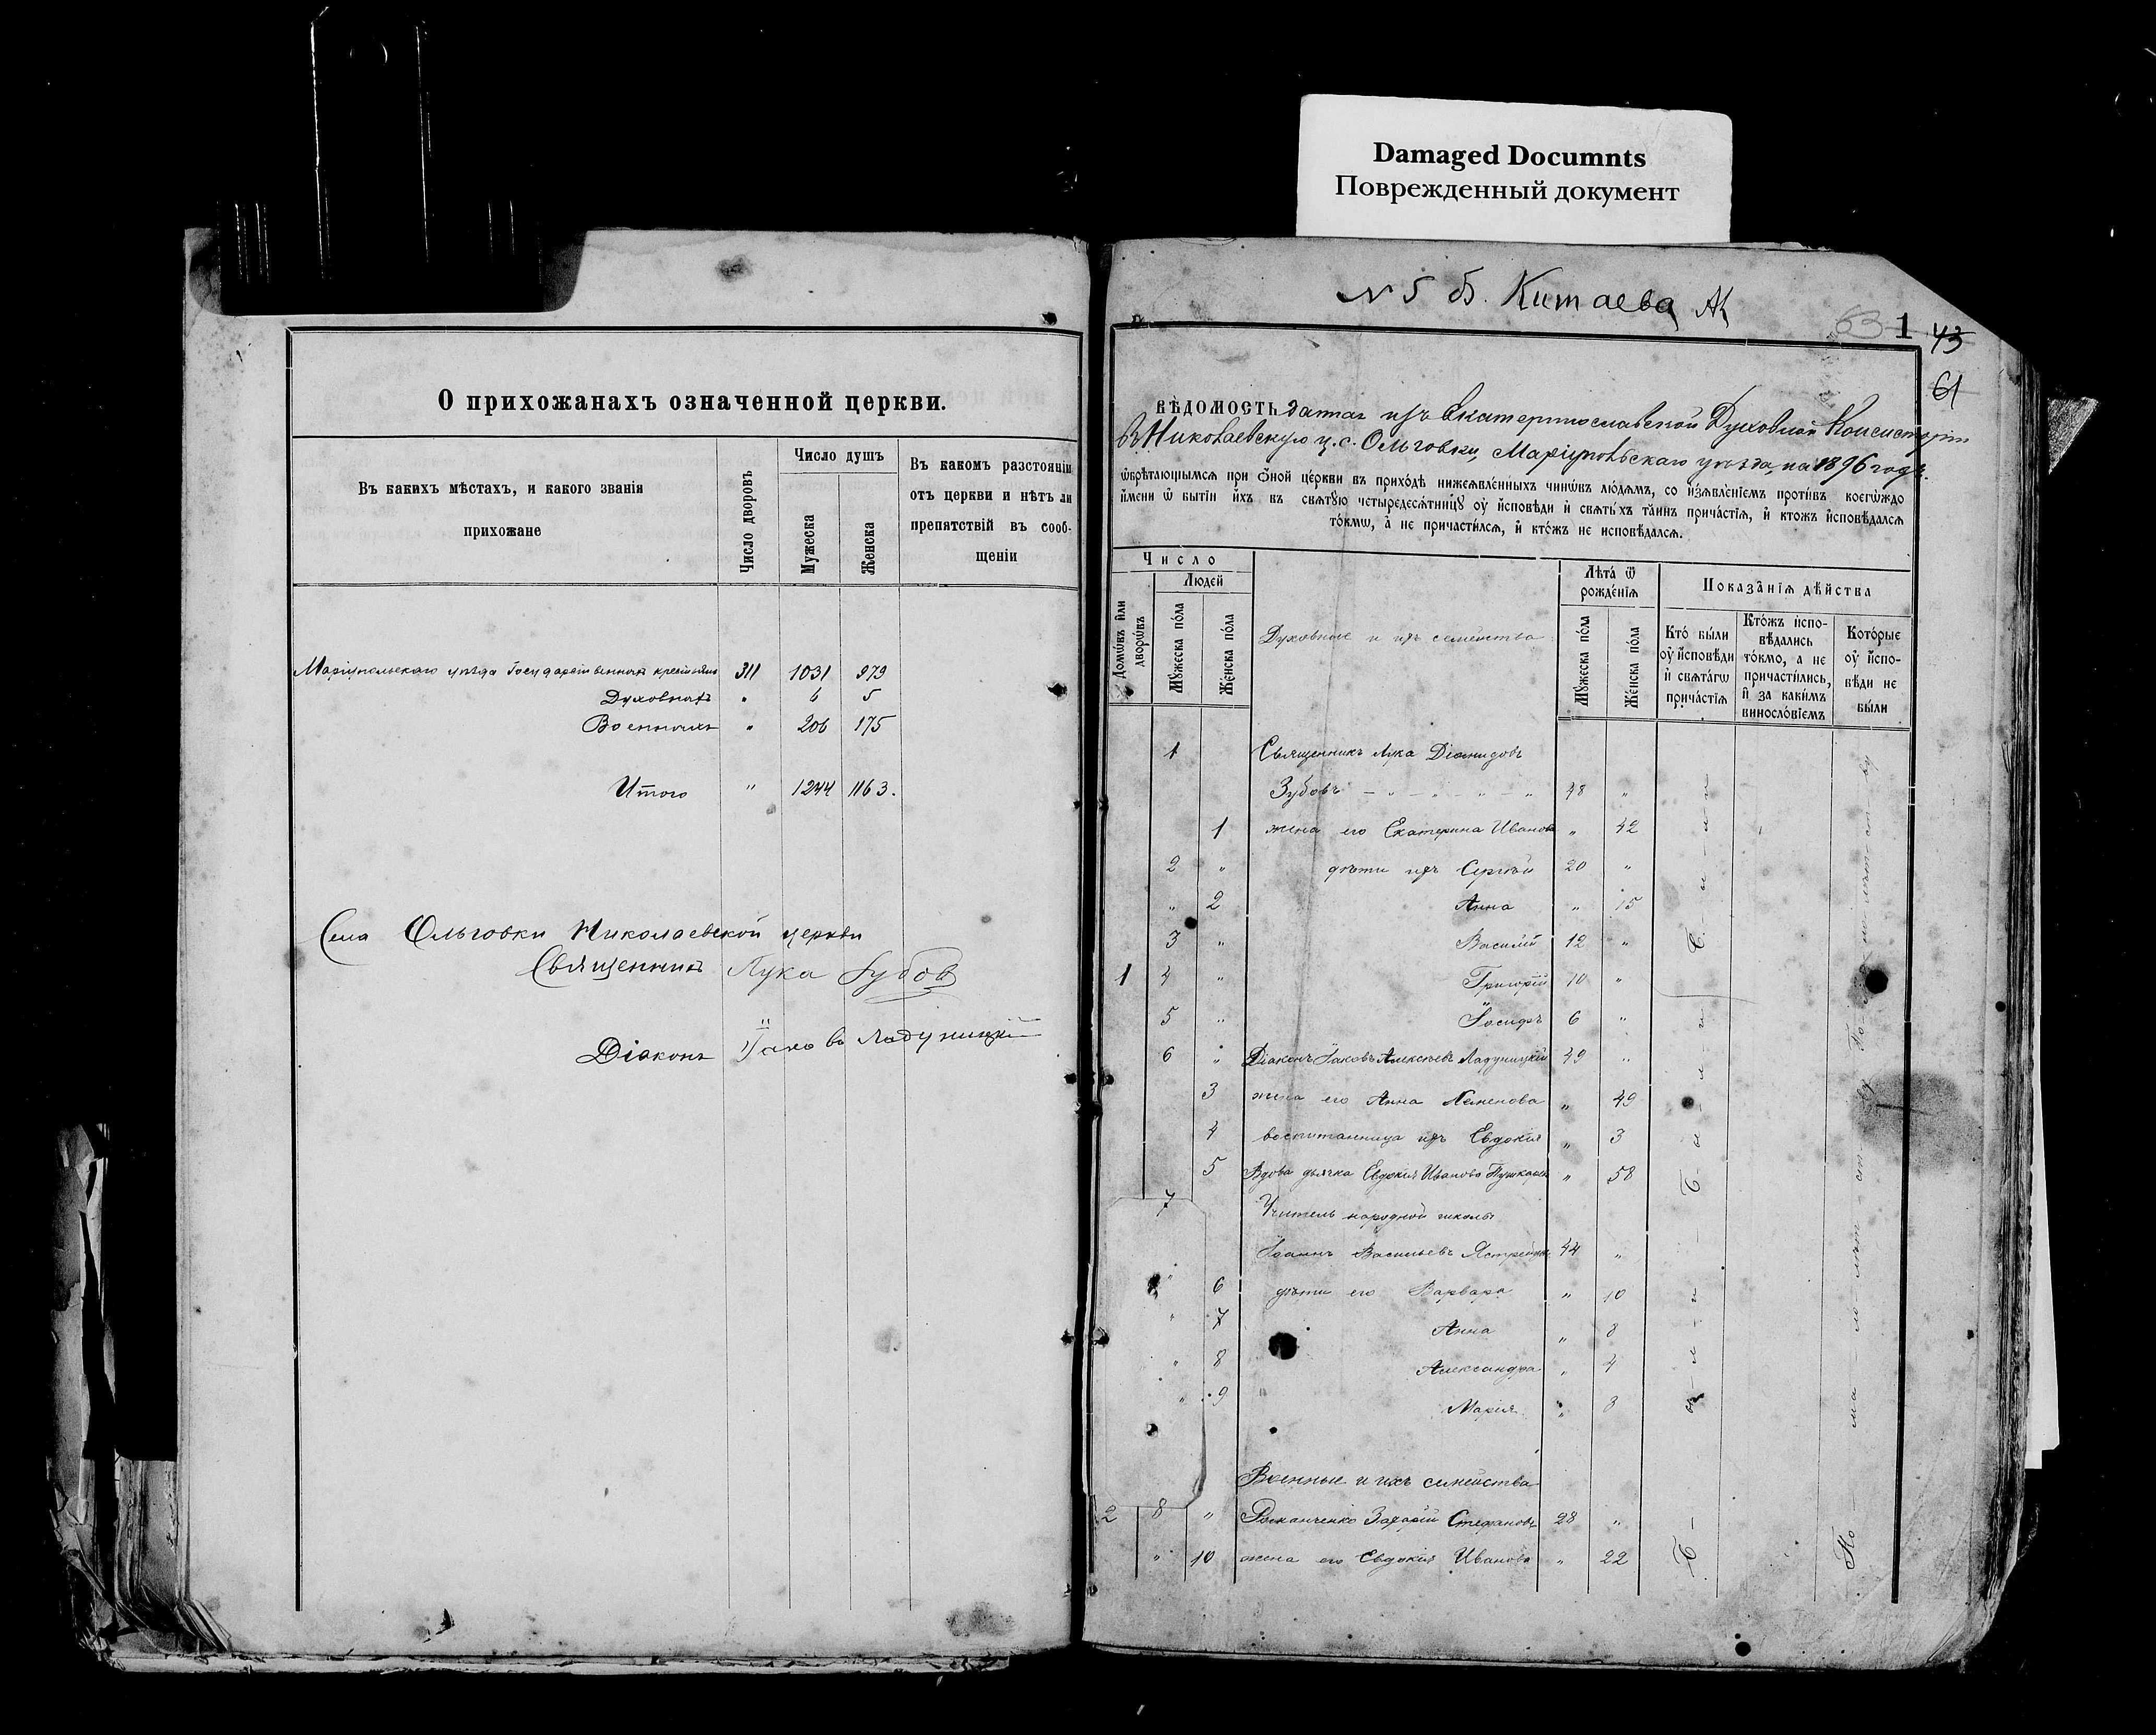 Damaged Documnts
Поврежденный документ
О прихожанахъ означенной церкви.
Въ какихъ мѣстахъ, и какого званія
прихожане
Число дворовъ
Число душъ
Мужеска
Женска
Въ какомъ разстояніи
отъ церкви и нѣтъ ли
препятствій въ сооб-
щеніи
Маріупольскаго уѣзда Государственныхъ крестьянъ 311 1031 979
Духовныхъ " 6 5
Военныхъ " 206 175
Итого " 1244 1163.
Села Ольговки Николаевской церкви
Священникъ Лука Зубовъ
Діаконъ Іаковъ Ладуницкій
N 5 Б. Китаева
63 1 43
61
ВѢДОМОСТЬ данная изъ Екатеринославской Духовной Консисторіи
въ Николаевскую ц. с. Ольговки, Маріупольскаго уѣзда, на 1896 годъ.
ѡбрѣтающымсѧ при ѻной це́ркви въ прихо́дѣ нижеѧвле́нныхъ чинѡ́въ лю́дѧмъ, со и҆з̾ѧвле́нїемъ проти́въ коегѡ́ждо
и҆́мени ѡ҆ бытїи и҆́хъ въ свѧтꙋ́ю четыредесѧ́тницꙋ ᲂу҆ и҆сповѣди и҆ свѧты́хъ та́инъ прича́стїѧ, и҆ ктожъ и҆сповѣ́далсѧ
то́кмѡ, а҆ не причасти́лсѧ, и҆ кто́жъ не исповѣ́далсѧ.
Число
Домѡ́въ и҆ли
дворѡ́въ
Людей
Мꙋжеска по́ла
Же́нска по́ла
Духовные и ихъ семейства
Лѣта́ ѿ
рожде́нїѧ
Мꙋжеска по́ла
Же́нска по́ла
Показа́нїѧ дѣ́йства
Кто́ бы́ли
ᲂу҆ и҆сповѣди
и҆ свѧта́гѡ
прича́стїѧ
Кто́жъ и҆спо-
вѣ́дались
то́кмо, а не
причасти́лись,
и҆ за каки́мъ
виносло́вїемъ
Кото́рые
ᲂу҆ и҆спо-
вѣди не
бы́ли
1 Священникъ Лука Діомидовъ
Зубовъ 48 "
1 жена его Екатерина Иванова " 42
2 " дѣти ихъ Сергѣй 20 "
" 2 Анна " 15
3 " Василій 12 "
1 4 " Григорій 10 "
5 " Іосифъ 6 "
6 " Діаконъ Іаковъ Алексѣевъ Ладуницкій 49 "
3 жена его Анна " 49
4 воспитанница ихъ Евдокія " 3
5 Вдова дьячка Евдокія Иванова " 58
7 Учитель народной школы
Іоаннъ Васильевъ 44 "
" 6 дѣти его Варвара " 10
" 7 Анна " 8
" 8 Александра " 4
" 9 Марія " 3
Военные и ихъ семейства
2 8 " Романченко Захарій Стефановъ 28 "
" 10 жена его Евдокія Иванова " 22